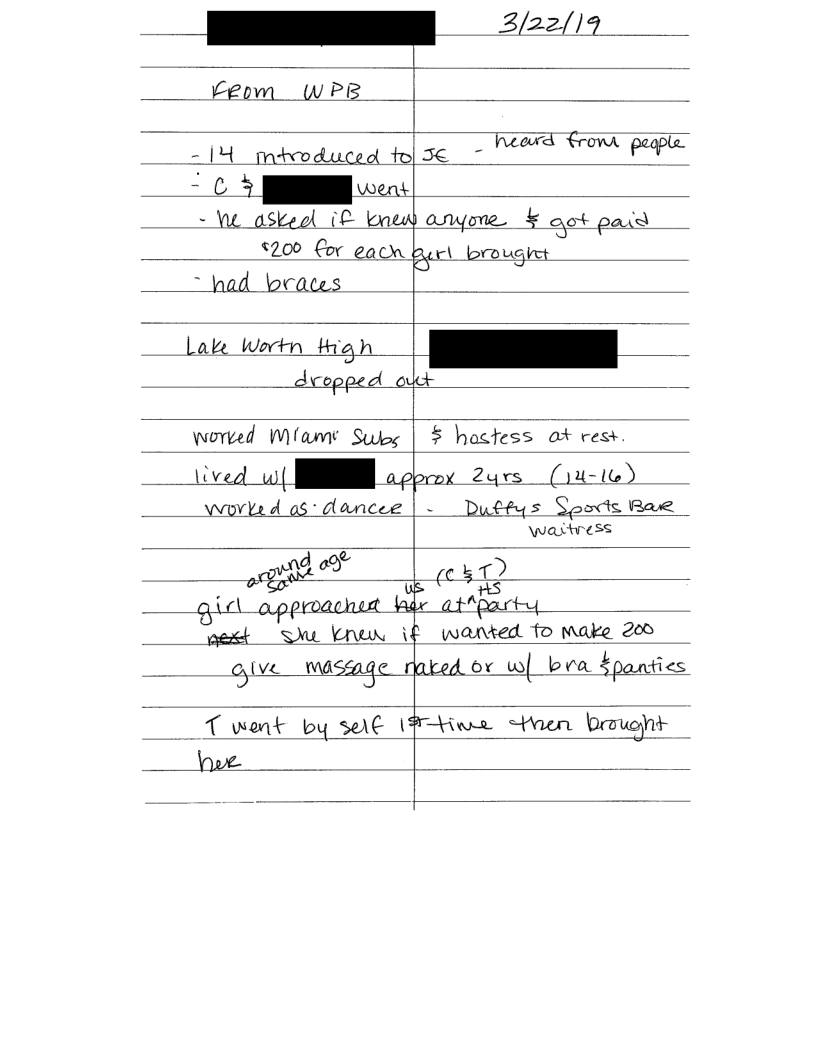 3/22/19
From WPB
- 14 introduced to JE - heard from people
- C & went
- he asked if knew anyone & got paid
$200 for each girl brought
- had braces
Lake Worth High
dropped out
worked Miami Subs & hostess at rest.
lived w/ approx 2yrs (14-16)
worked as dancer - Duffys Sports Bar
waitress
around
same age
us (C & T)
HS
girl approached her at ^ party
next she knew if wanted to make 200
give massage naked or w/ bra & panties
T went by self 1st time then brought
her